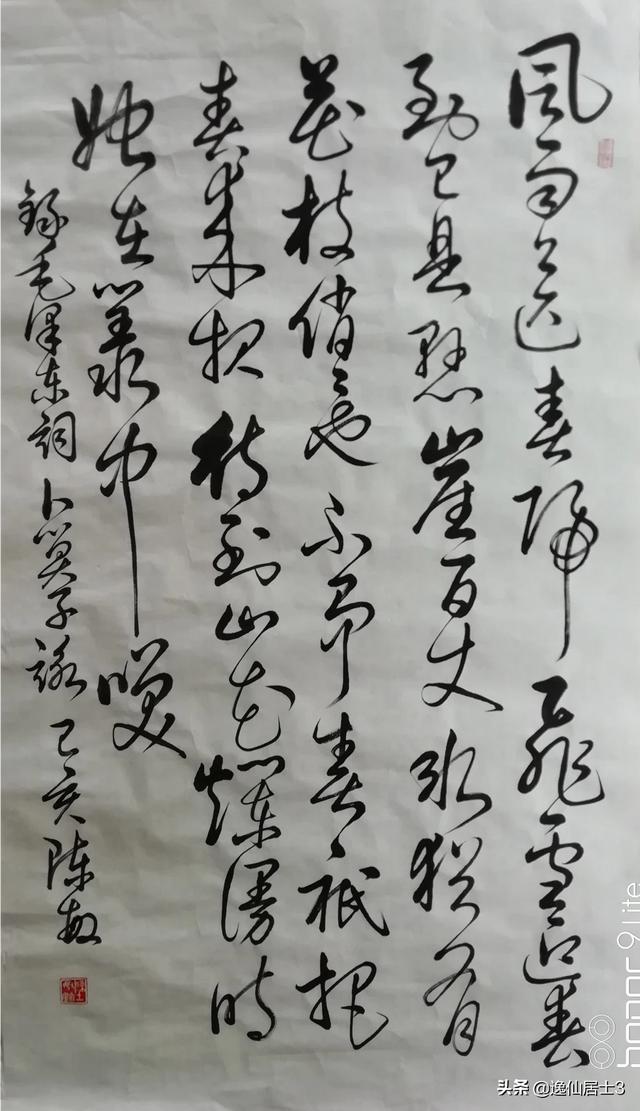 風雨送春歸飛雪迎春
到已是懸崖百丈冰猶有
花枝俏〻也不爭春〻祇把
春來報待到山花爛漫時
她在叢中笑
錄毛澤東詞卜算子詠己亥陈敏
honor 9 Lite
头条 @逸仙居士3